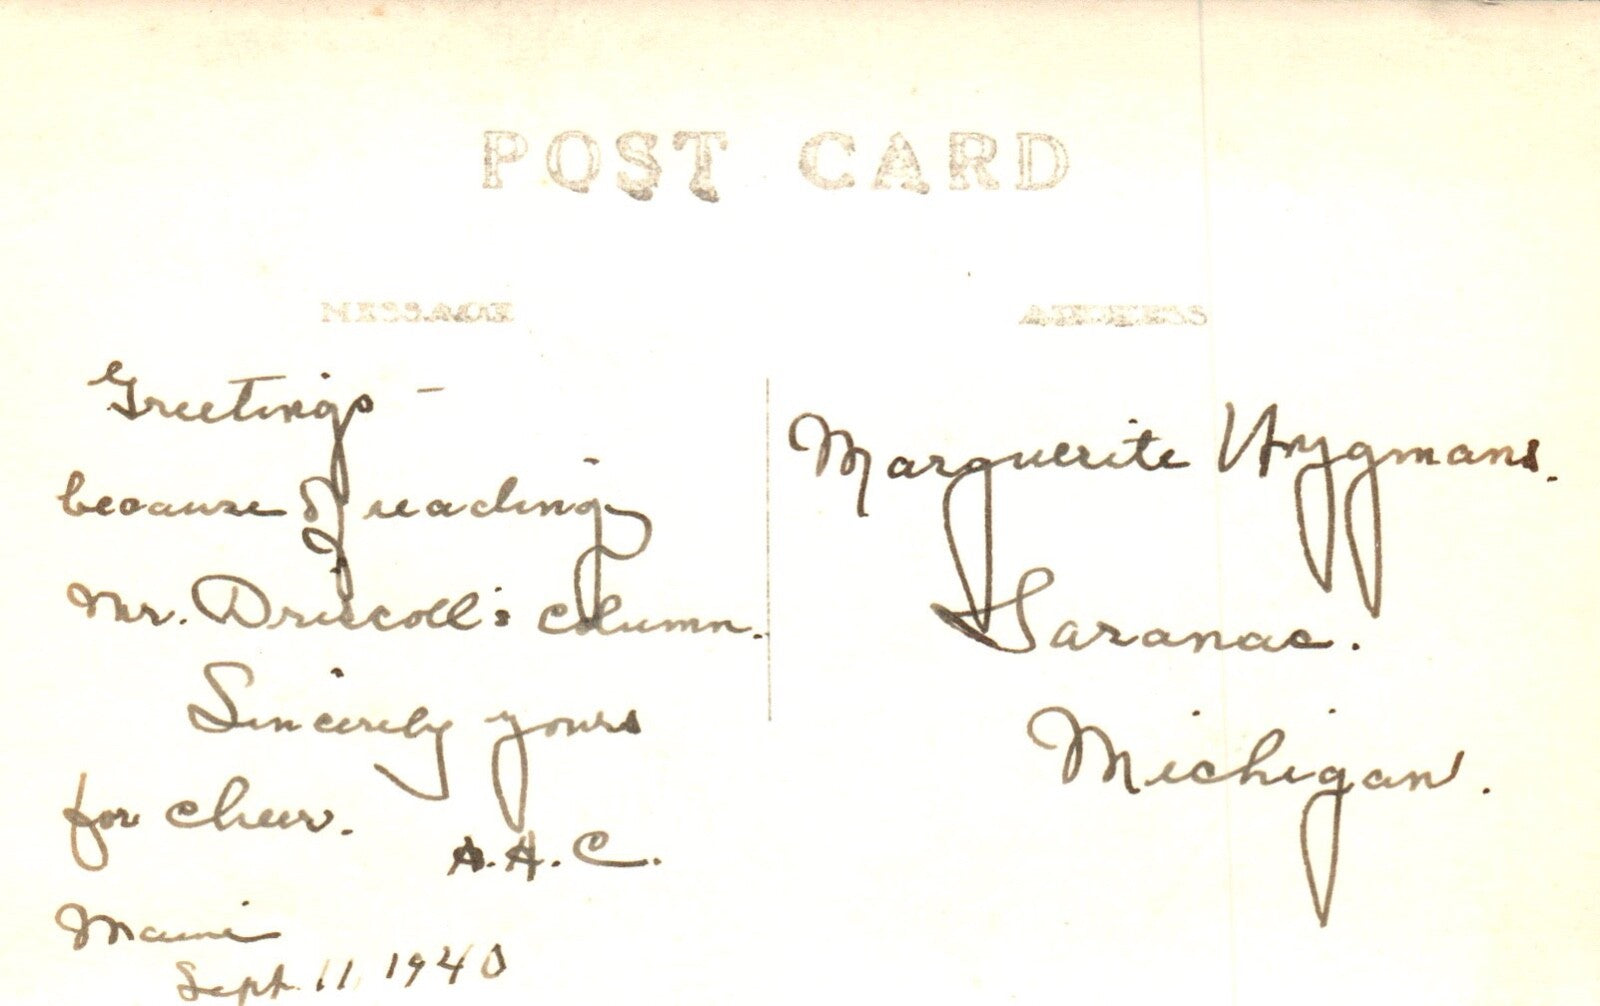 POST CARD
MESSAGE
ADDRESS
Greetings –
because of reading
Mr. Driscoll's column.
Sincerely yours
for cheer.
A. H. C.
Maine
Sept. 11, 1940
Marguerite
Saranac.
Michigan.